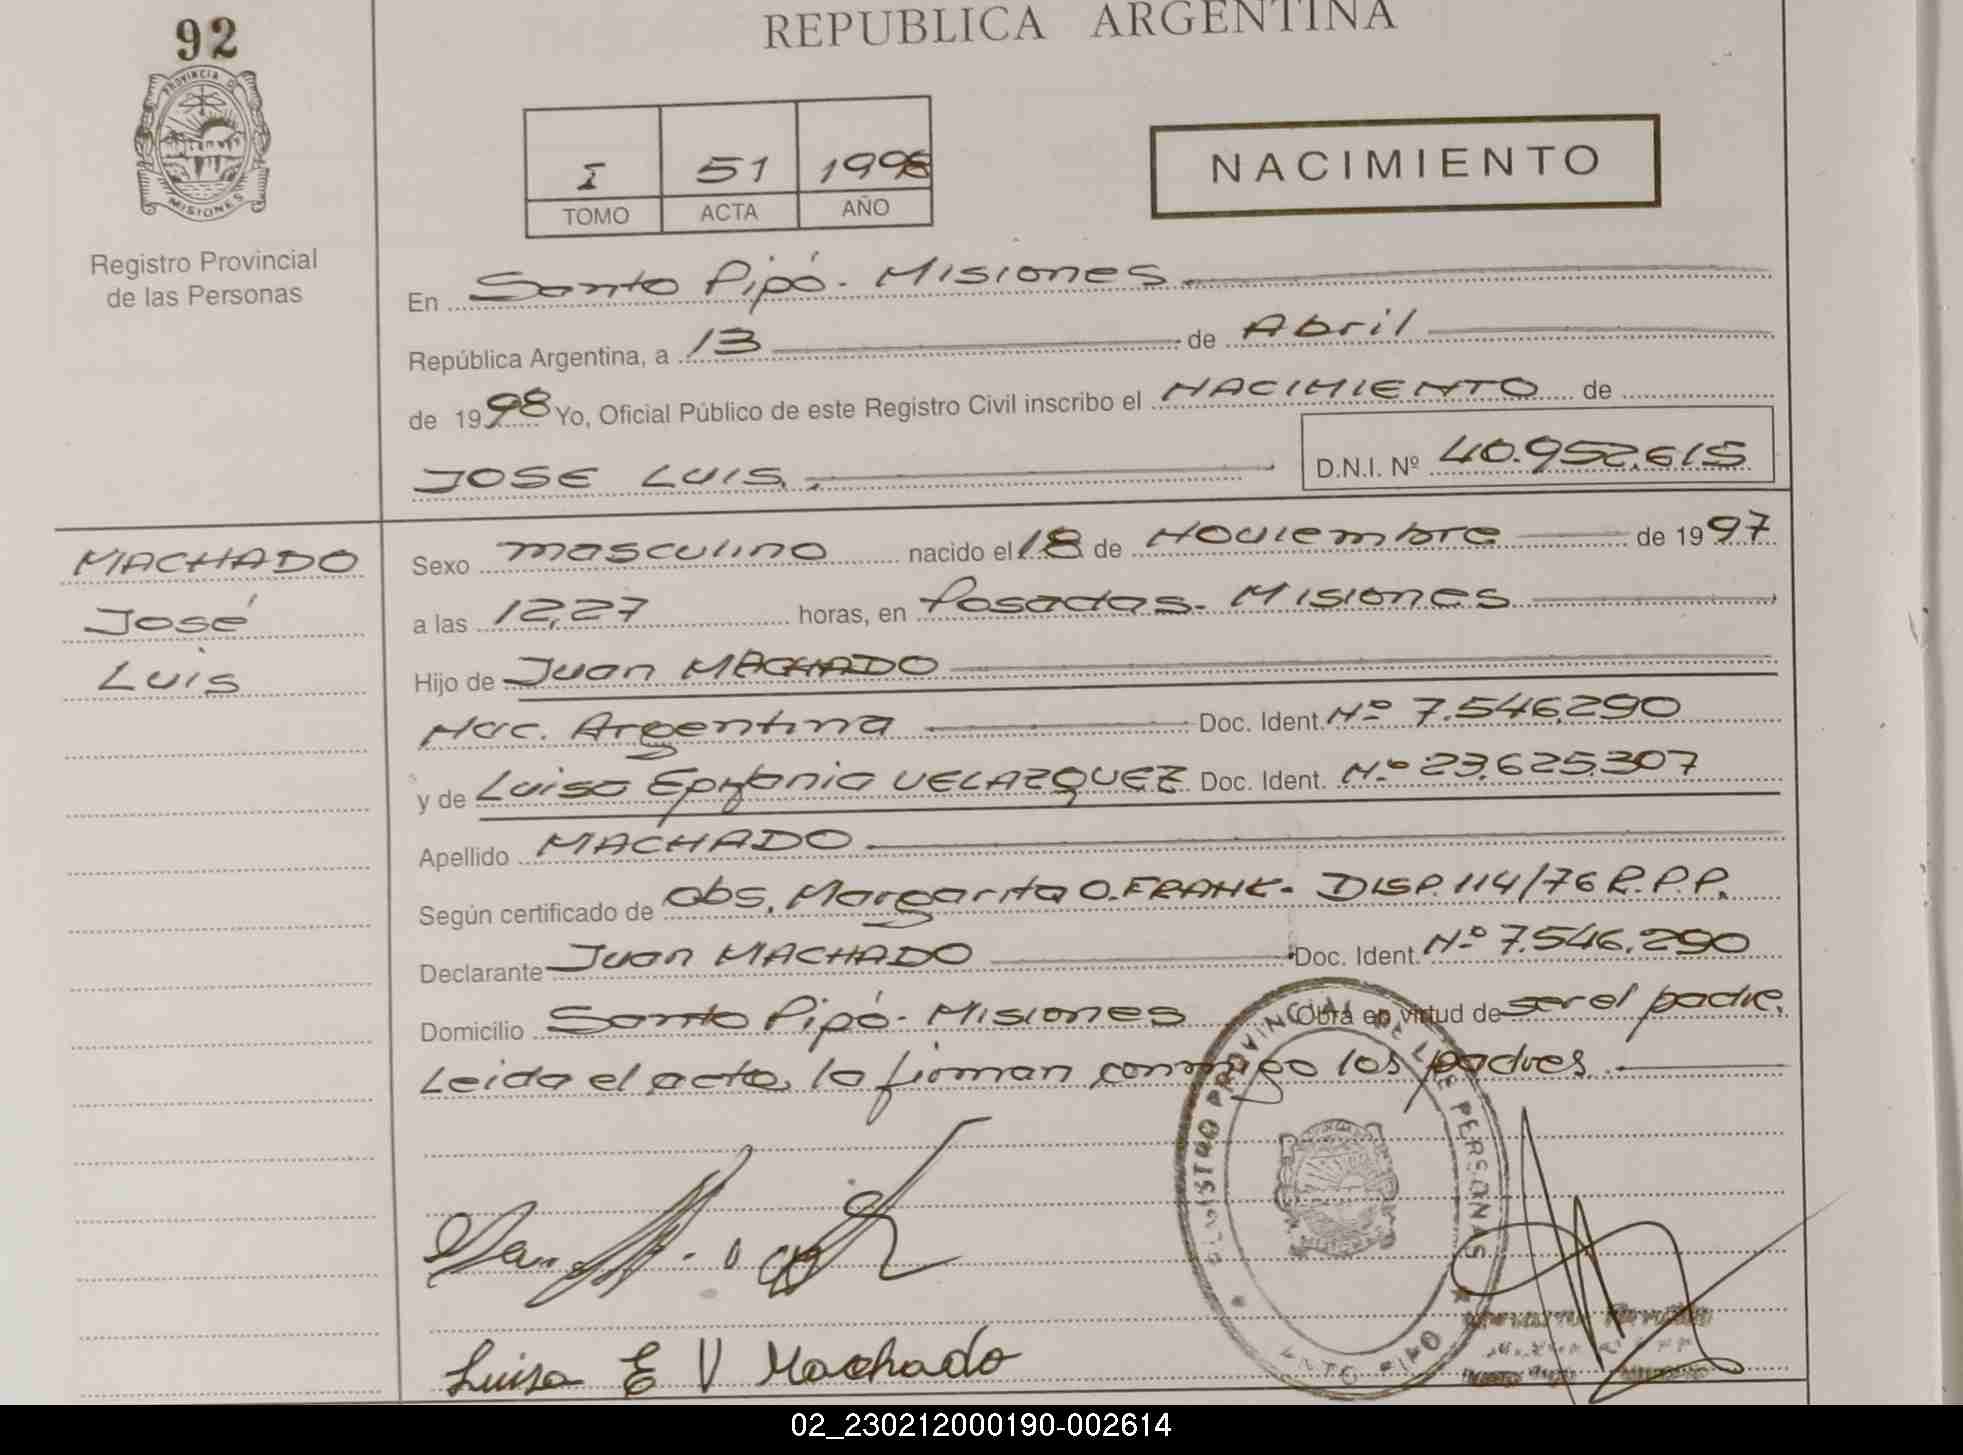 92
REPUBLICA ARGENTINA
PROVINCIA DE
MISIONES
Registro Provincial
de las Personas
I 51 1998
TOMO ACTA AÑO
NACIMIENTO
En Santo Pipó - Misiones
República Argentina, a 13 de Abril
de 1998 Yo, Oficial Público de este Registro Civil inscribo el NACIMIENTO de
JOSE LUIS. D.N.I. Nº 40.952.615
MACHADO
José
Luis
Sexo masculino nacido el 18 de Noviembre de 1997
a las 12,27 horas, en Posadas - Misiones
Hijo de Juan MACHADO
Nac. Argentina Doc. Ident. Nº 7.546.290
y de Luisa Epifania VELAZQUEZ Doc. Ident. Nº 23.625.307
Apellido MACHADO
Según certificado de Obs. Margarita O. FRANK - DISP. 114/76 R.P.P.
Declarante Juan MACHADO Doc. Ident. Nº 7.546.290
Domicilio Santo Pipó - Misiones Obra en virtud de ser el padre.
Leida el acta, la firman conmigo los padres.
REGISTRO PROVINCIAL DE LAS PERSONAS
SANTO PIPO
Luisa E V Machado
02_230212000190-002614